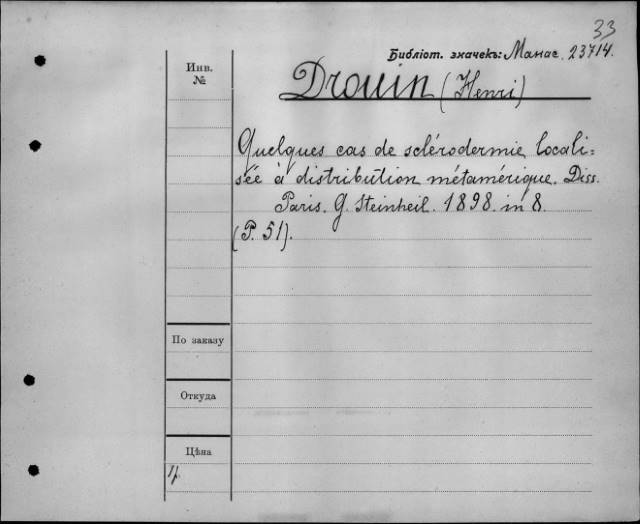 33
Библіот. значекъ: Манас. 23714.
Инв.
№
Drouin (Henri)
Quelques cas de sclérodermie locali=
sée à distribution métamérique. Diss.
Paris. G. Steinheil. 1898. in 8.
(P. 51).
По заказу
Откуда
Цѣна